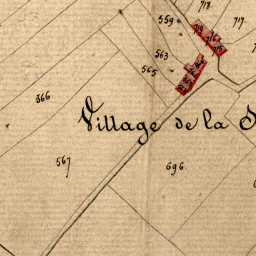 718
717
559
563
565
566
Village de la
567
696